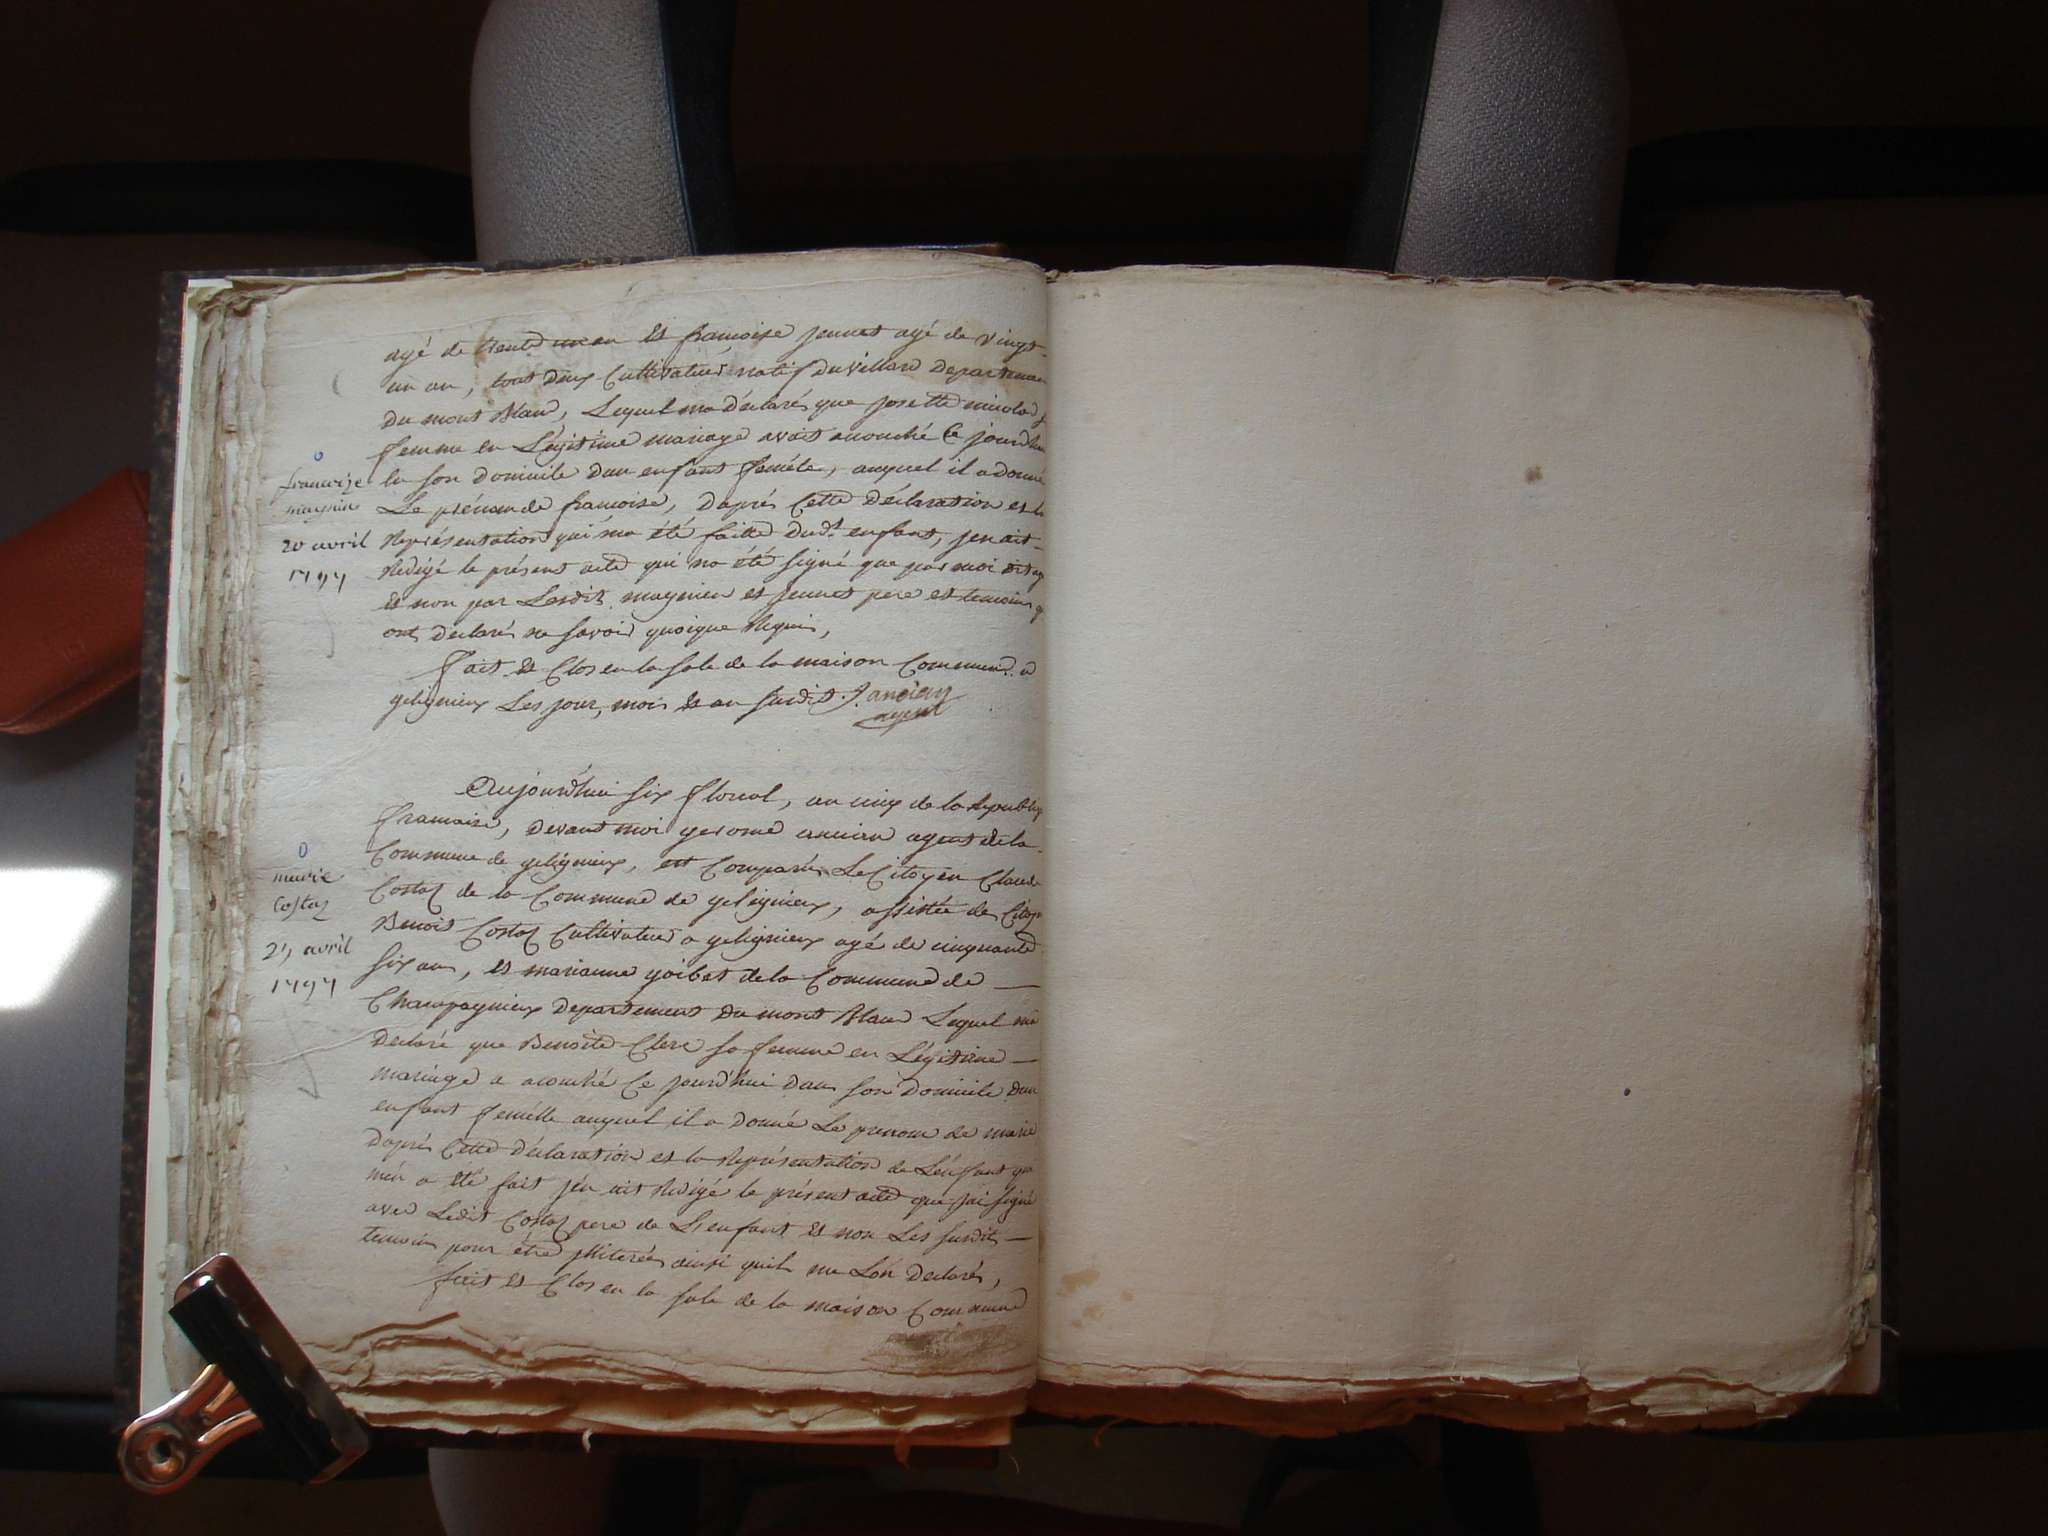 agé de trente un an et françoise jennet agé de vingt-
un an, tout deux Cultivateur natif du villard Departemen
Du mont Blanc, Lequel ma déclaré que josette
femme en Légitime mariage avoit acouché Ce jourdhui
en son Domicile dun enfant feméle, auquel il a donné
Le prénom de francoise, Daprès Cette Déclaration et la
Représentation qui ma été faitte dudt enfant, jen ait
Redigé le présent acte qui na été signé que par moi
et non par Lesdit maynien et jennet pere et temoins
ont déclarés ne savoir quoique Requis,
fait et Clos en la sale de la maison Commune a
geligneux Les jour, mois et an susdit J. ancian
agent
francoize
maynin
20 avril
1797
Aujourdhui six floreal, an cinq de la Republiq
francaise, Devant moi gerome ancian agent de la
Commune de geligneux, est Comparu Le Citoyen Claude
Costaz de la Commune de geligneux, assistée de Citoy
Benoit Costaz Cultivateur a geligneux agé de cinquante
six an, et marianne goibet de la Commune de
Champagneux Departement Du mont Blanc Lequel ma
Declaré que Benoite Clerc sa femme en Légitime
mariage a acouché Ce jourd'hui dans son Domicile dun
enfant feméllle auquel il a donné Le prenom de marie
Daprès Cette Déclaration et la Représentation de Lénfant que
men a été fait jén ait Redigé le présent acte que jai signé
avec Ledit Costaz pere de L'enfant et non Les susdit
temoin pour être jlliterés ainsi quil me Lón Declarés,
fait et Clos en la sale de la maison Commune
marie
Costaz
25 avril
1797